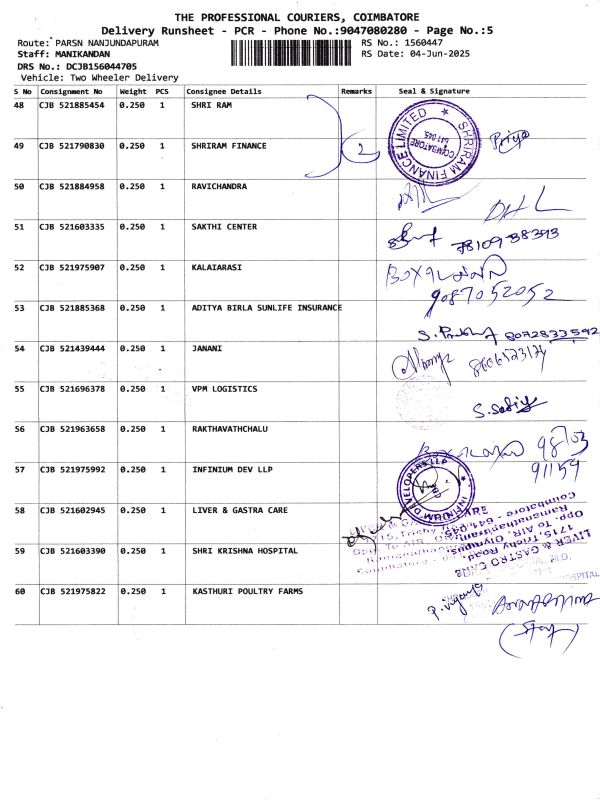 THE PROFESSIONAL COURIERS, COIMBATORE
Delivery Runsheet - PCR - Phone No.:9047080280 - Page No.:5
Route: PARSN NANJUNDAPURAM RS No.: 1560447
Staff: MANIKANDAN RS Date: 04-Jun-2025
DRS No.: DCJB156044705
Vehicle: Two Wheeler Delivery
S No Consignment No Weight PCS Consignee Details Remarks Seal & Signature
48 CJB 521885454 0.250 1 SHRI RAM
SHRIRAM FINANCE LIMITED
COIMBATORE
641 045
Priya
49 CJB 521790830 0.250 1 SHRIRAM FINANCE 2
50 CJB 521884958 0.250 1 RAVICHANDRA
DHL
51 CJB 521603335 0.250 1 SAKTHI CENTER
52 CJB 521975907 0.250 1 KALAIARASI
9087052052
53 CJB 521885368 0.250 1 ADITYA BIRLA SUNLIFE INSURANCE
54 CJB 521439444 0.250 1 JANANI
55 CJB 521696378 0.250 1 VPM LOGISTICS
56 CJB 521963658 0.250 1 RAKTHAVATHCHALU
98703
91159
57 CJB 521975992 0.250 1 INFINIUM DEV LLP
INFINIUM DEVELOPERS LLP
58 CJB 521602945 0.250 1 LIVER & GASTRA CARE
LIVER & GASTRO CARE
1715, Trichy Road,
Opp. To AIR, Olympus,
Ramanathapuram,
Coimbatore - 641 045
59 CJB 521603390 0.250 1 SHRI KRISHNA HOSPITAL
HOSPITAL
60 CJB 521975822 0.250 1 KASTHURI POULTRY FARMS
(Staff)